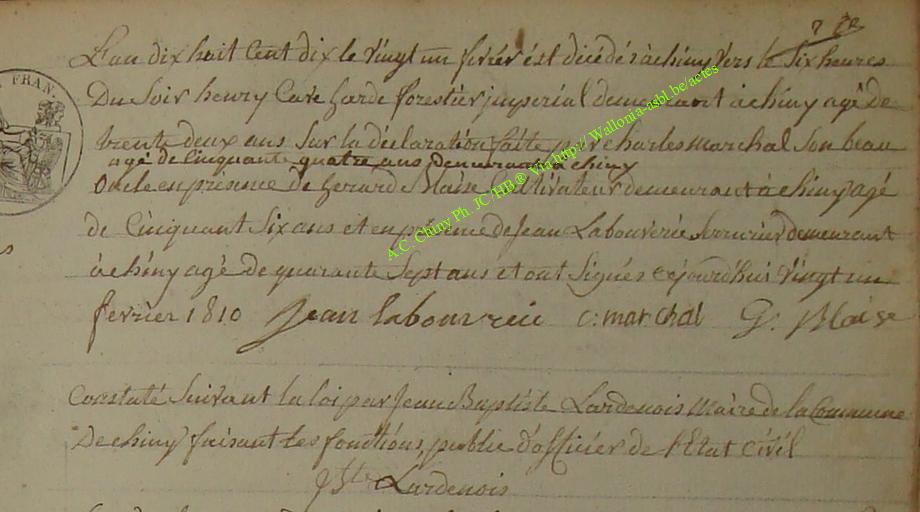 7 re
L'an dix huit Cent dix le vingt un fevrér est décédé à chiny vers le Six heures
Du Soir henry Care Garde forestiér jmperial demeurant à chiny agé de
trente deux ans Sur la déclaration faite par charles marchal Son beau
agé de Cinquante quatre ans demeurant à chiny
Oncle en présence de Gerard Blaise Cultivateur demeurant à chiny agé
de Cinquant Six ans et en présence de Jean Labouverie Serrurier demeurant
à chiny agé de quarante Sept ans et ont Signés cejourd'hui vingt un
fevriér 1810 Jean labouvreie c: marchal G. Blaise
FRAN.
Constaté Suivant la loi par Jean Baptiste Lardenois Maire de la Commune
De chiny faisant les fonctions, public d'officier de l'Etat Civil
JBte Lardenois
A.C. Chiny Ph. JC HB® Via http// Wallonia-asbl.be/actes